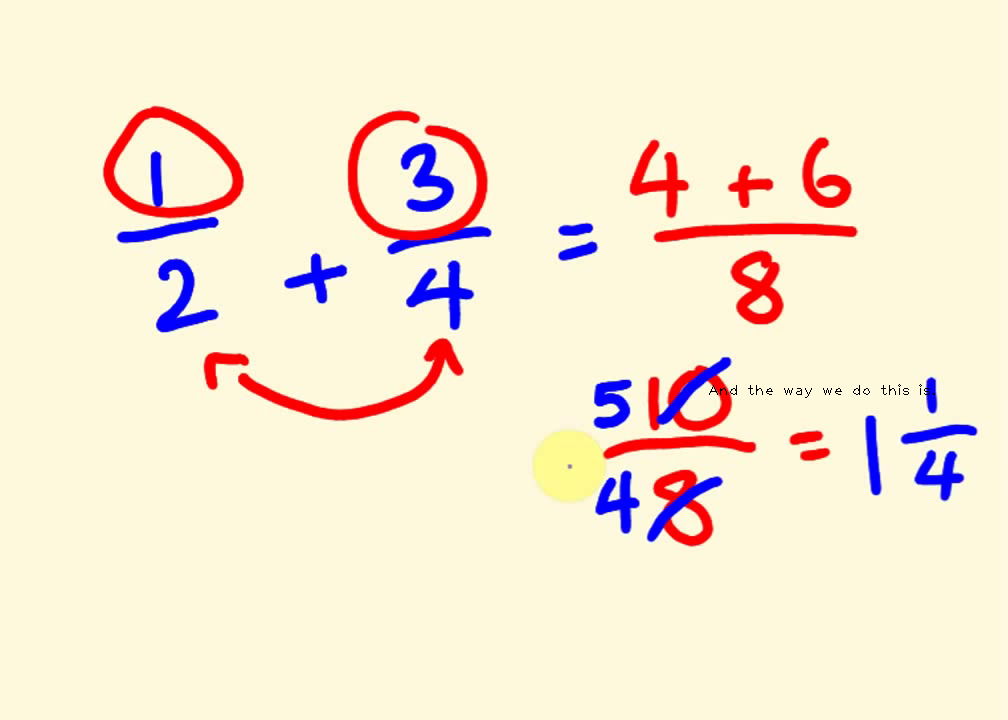 1/2 + 3/4 = 4 + 6/8
5 10/4 8 = 1 1/4
And the way we do this is